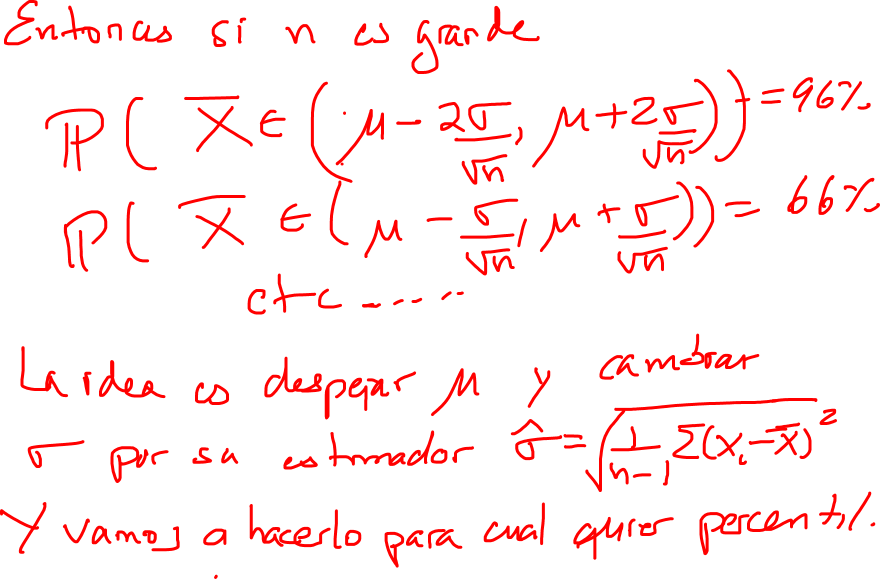 Entonces si n es grande
ℙ( X̄ ∈ (μ - 2σ/√n, μ + 2σ/√n)) = 96%
ℙ( X̄ ∈ (μ - σ/√n, μ + σ/√n)) = 66%
etc .....
La idea es despejar μ y cambiar
σ por su estimador σ̂ = √(1/(n-1) Σ(xᵢ - x̄)²)
Y vamos a hacerlo para cualquier percentil.